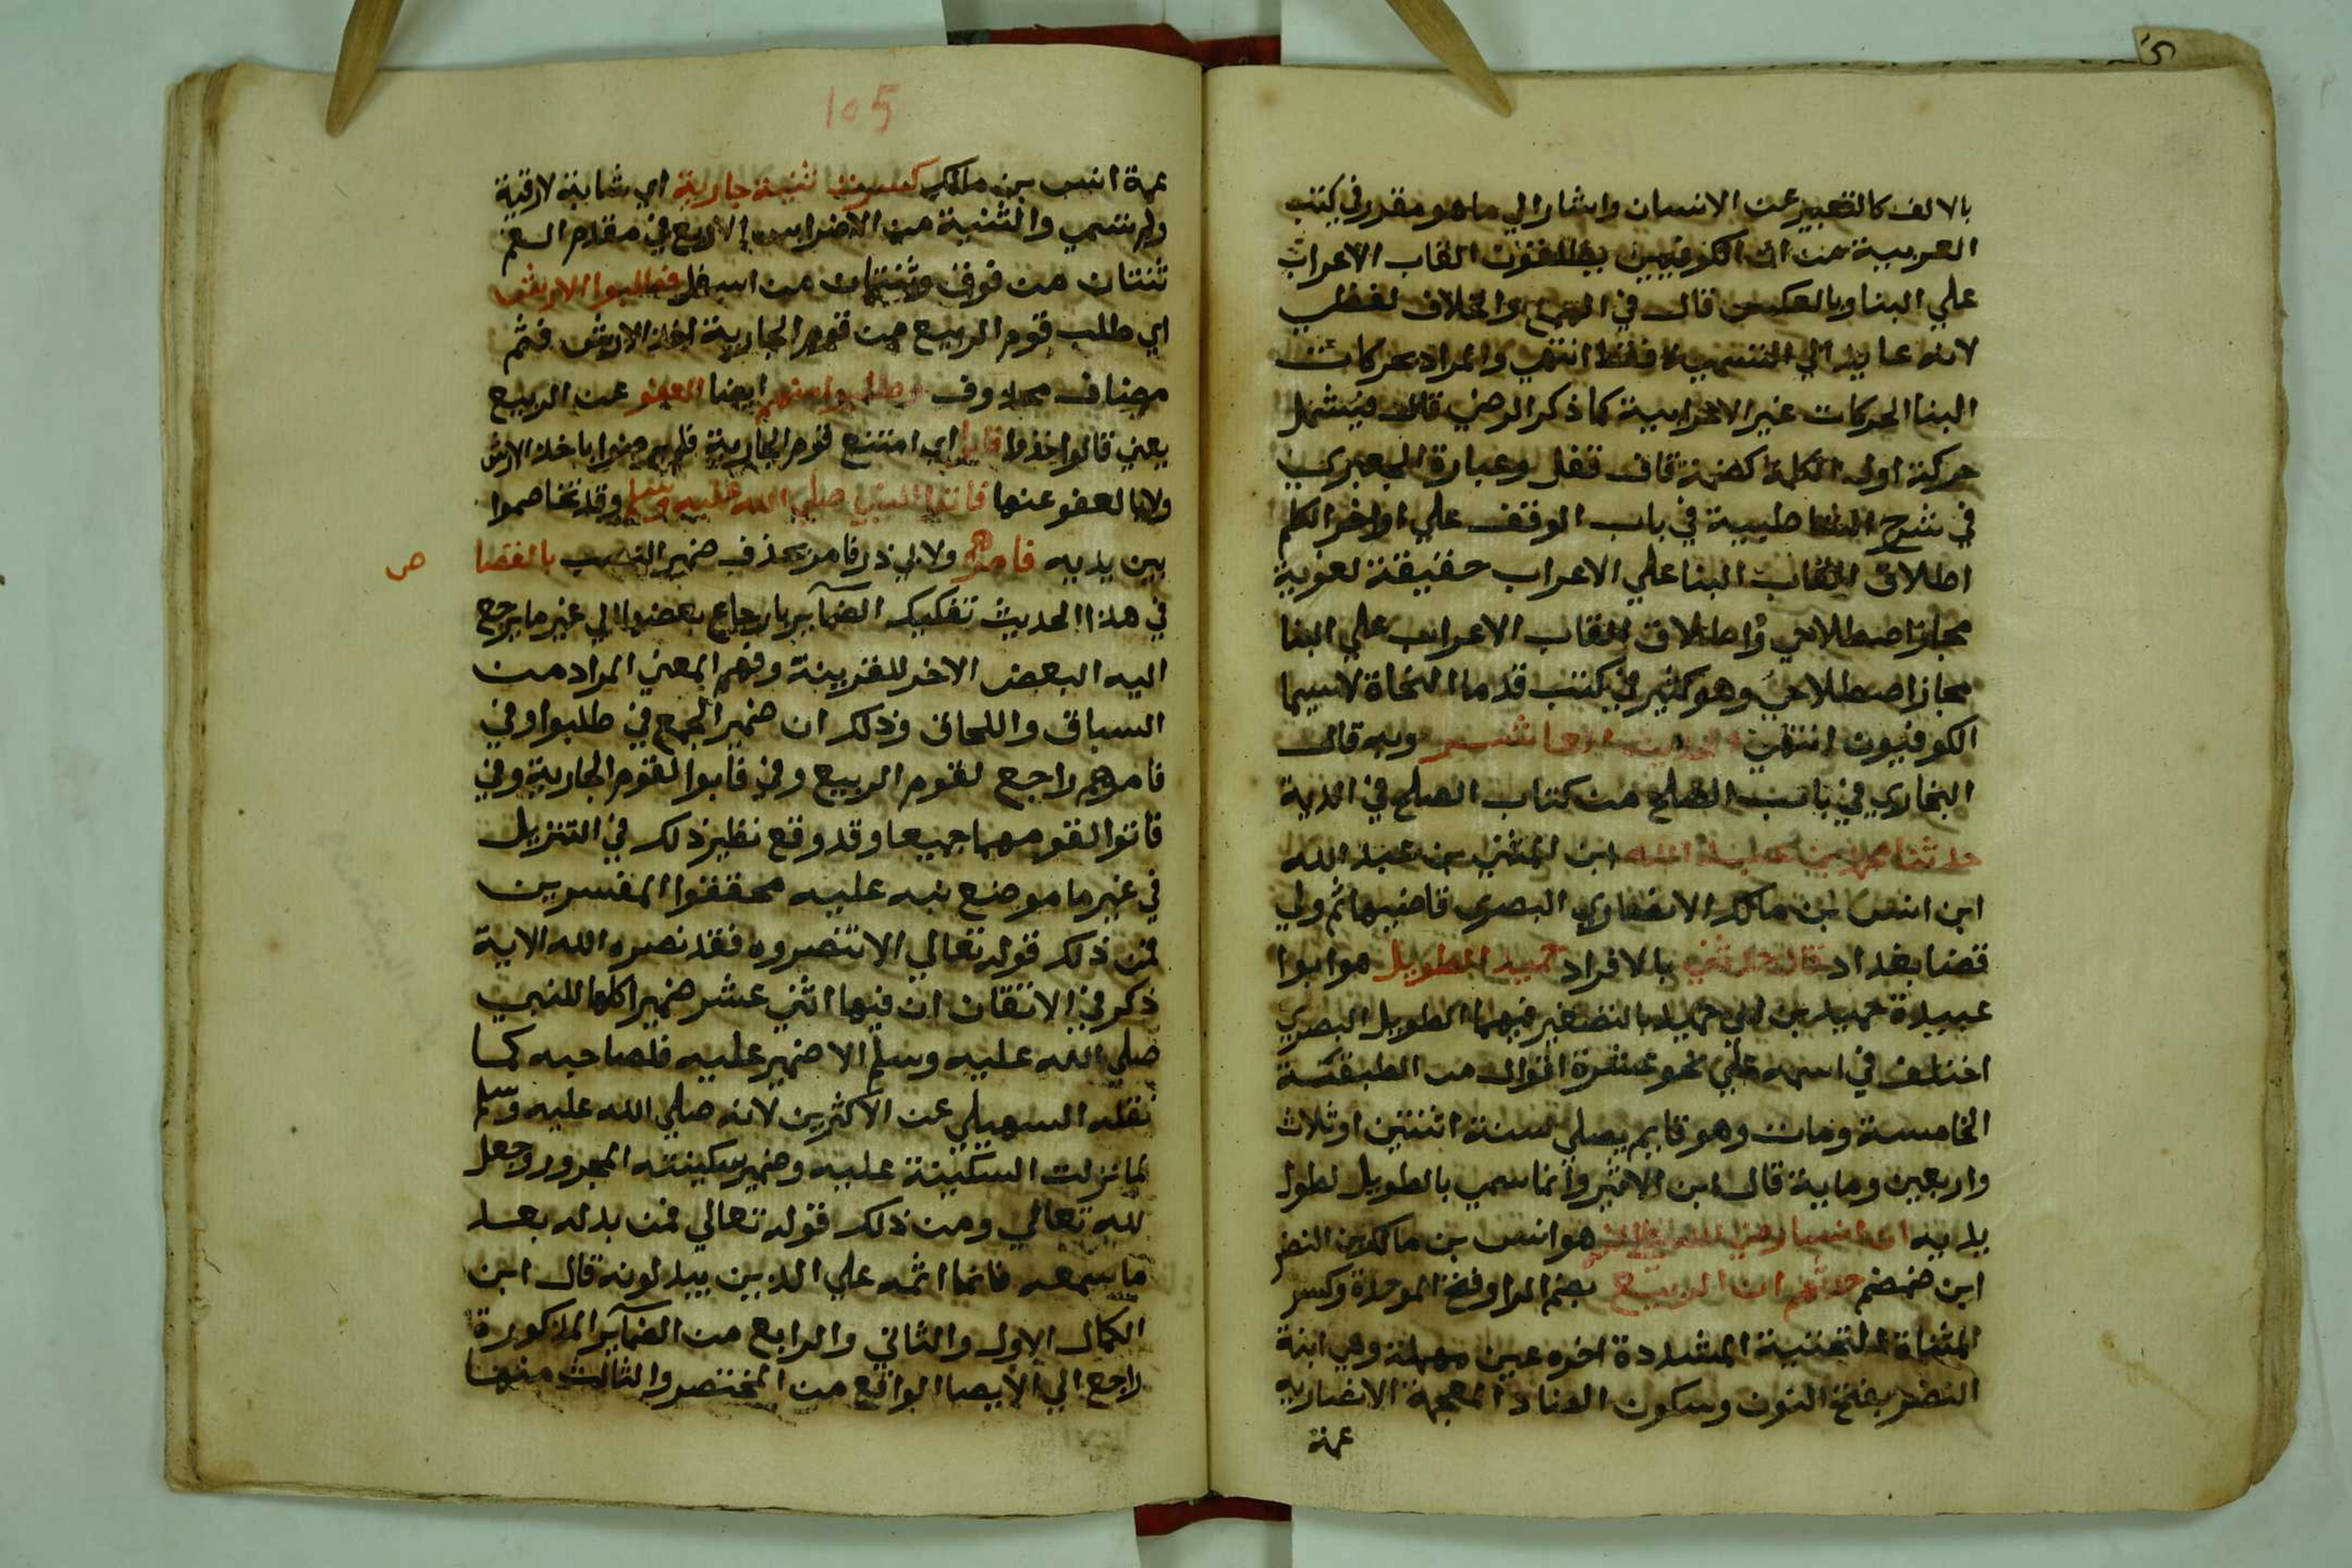 بالالف كالتعبير عن الانسان واشار الي ما هو مقدر في كتب
العربية من ان الكوفيين يطلقون القاب الاعراب
علي البنا وبالعكس قال في الهمع والخلاف لفظي
لانه عايد الي التسمية فقط انتهي والمراد بحركات
البنا الحركات غير الاعرابية كما ذكر الرضي قال فيشمل
حركة اول الكلمة كضمة قاف قفل وعبارة الجعبري
في شرح الشاطبية في باب الوقف علي اواخر الكلم
اطلاق القاب البنا علي الاعراب حقيقة لغوية
مجاز اصطلاحي واطلاق القاب الاعراب علي البنا
مجاز اصطلاحي وهو كثير في كتب قدما النحاة لاسيما
الكوفيون انتهي الحديث العاشر وبه قال
البخاري في باب الصلح من كتاب الصلح في الدية
حدثنا محمد بن عبد الله ابن المثني بن عبد الله
ابن انس بن مالك الانصاري البصري قاضيها ثم ولي
قضا بغداد قال حدثني بالافراد حميد الطويل هو ابوا
عبيدة حميد بن ابي حميد بالتصغير فيهما الطويل البصري
اختلف في اسمه علي نحو عشرة اقوال من الطبقة
الخامسة ومات وهو قايم يصلي سنة اثنتين او ثلاث
واربعين وماية قال ابن الاثير وانما سمي بالطويل لطول
يديه ان انسا رضي الله عنه هو انس بن مالك بن النضر
ابن ضمضم حدثهم ان الربيع بضم الرا وفتح الموحدة وكسر
المثناة التحتية المشددة اخره عين مهملة وهي ابنة
النضر بفتح النون وسكون الضاد المعجمة الانصارية
عمة
105
عمة انس بن مالك كسرت ثنية جارية اي شابة لا رقيقة
ولم تسمي والثنية من الاضراس الاربع في مقدم الفم
ثنتان من فوق وثنتان من اسفل فطلبوا الارش
اي طلب قوم الربيع من قوم الجارية اخذ الارش فثم
مضاف محذوف وطلبوا منهم ايضا العفو عن الربيع
يعني قالوا خذوا فابوا اي امتنع قوم الجارية فلم يرضوا باخذ الارش
ولا بالعفو عنها فاتوا النبي صلي الله عليه وسلم وقد تخاصموا
بين يديه فامرهم ولابي ذر فامر بحذف ضمير النصب بالقصا
ص
في هذا الحديث تفكيك الضمآير بارجاع بعضها الي غير ما يرجع
اليه البعض الاخر للقرينة وفهم المعني المراد من
السباق واللحاق وذلك ان ضمير الجمع في طلبوا وفي
فامرهم راجع لقوم الربيع وفي فابوا لقوم الجارية وفي
فاتوا لقومهما جميعا وقد وقع نظير ذلك في التنزيل
في غير ما موضع نبه عليه محققوا المفسرين
فمن ذلك قوله تعالي الا تنصروه فقد نصره الله الاية
ذكر في الاتقان ان فيها اثني عشر ضميرا كلها للنبي
صلي الله عليه وسلم الا ضمير عليه فلصاحبه كما
نقله السهيلي عن الاكثرين لانه صلي الله عليه وسلم
لما نزلت السكينة عليه وضمير سكينته المجرور وجعل
لله تعالي ومن ذلك قوله تعالي فمن بدله بعد
ما سمعه فانما اثمه علي الذين يبدلونه قال ابن
الكمال الاول والثاني والرابع من الضمآير المذكورة
راجع الي الايصا الواقع من المختصر والثالث منها